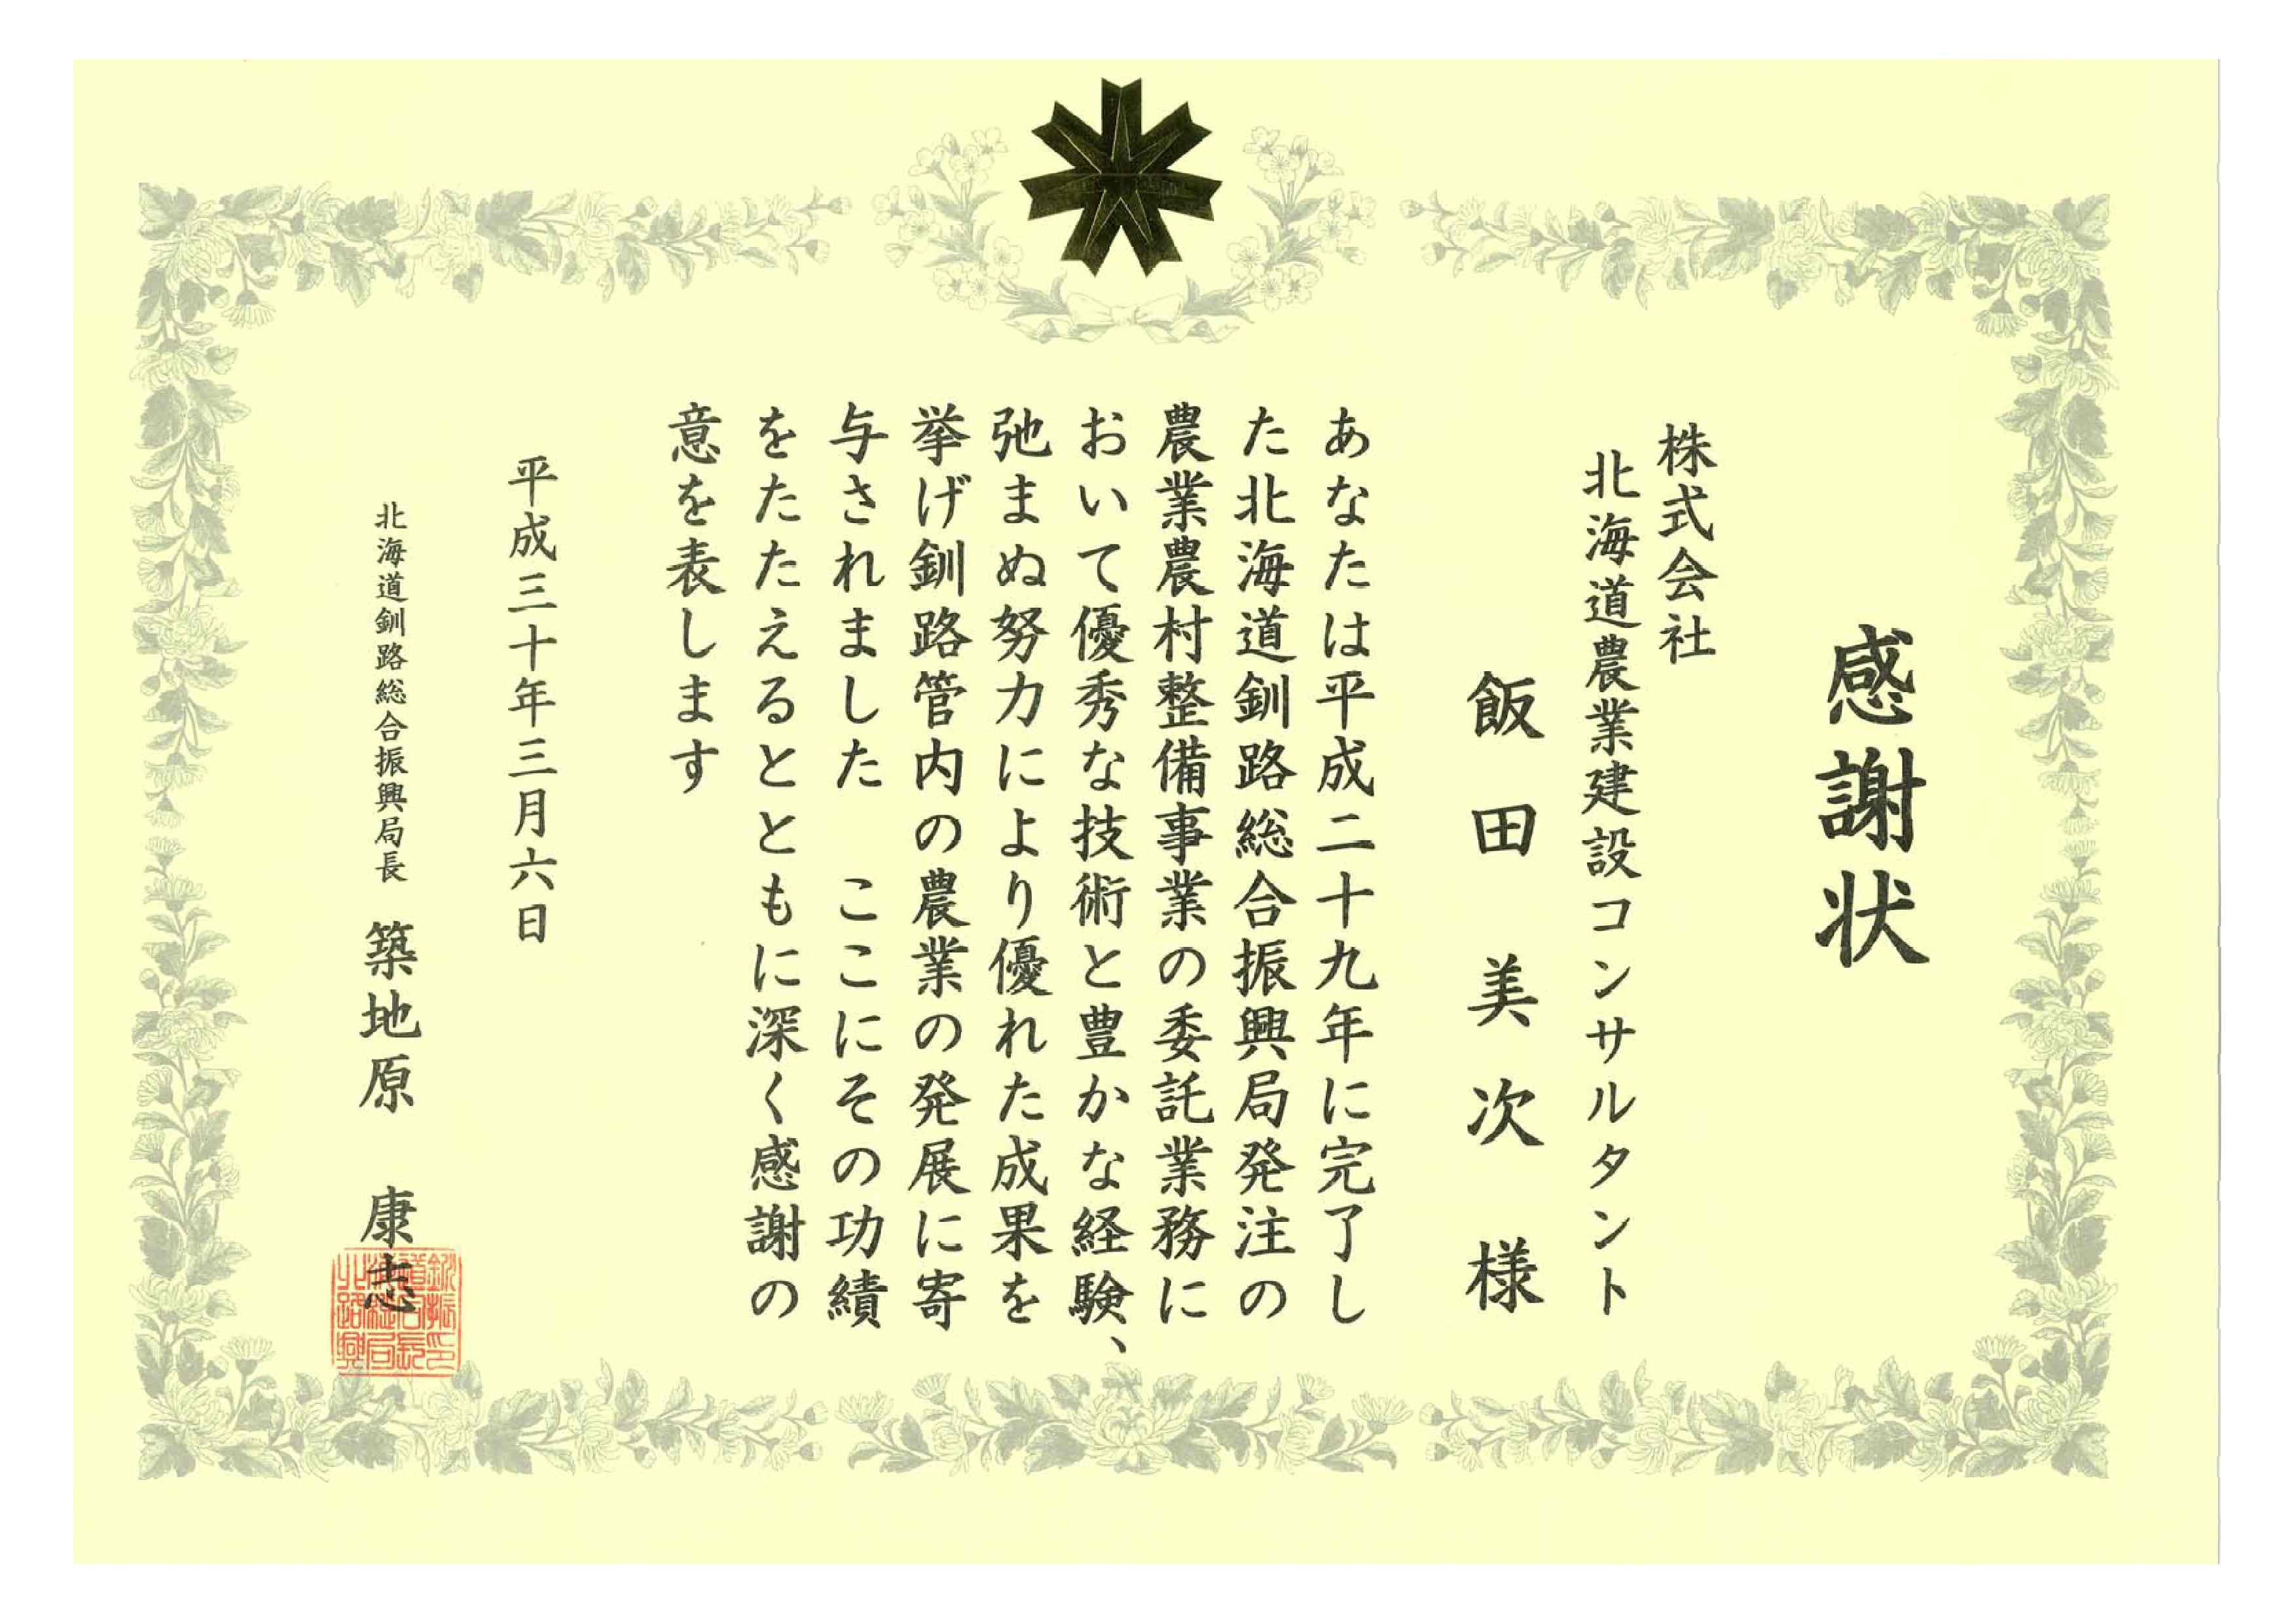 感謝状
株式会社
北海道農業建設コンサルタント
飯田美次様
あなたは平成二十九年に完了し
た北海道釧路総合振興局発注の
農業農村整備事業の委託業務に
おいて優秀な技術と豊かな経験、
弛まぬ努力により優れた成果を
挙げ釧路管内の農業の発展に寄
与されました　ここにその功績
をたたえるとともに深く感謝の
意を表します
平成三十年三月六日
北海道釧路総合振興局長　築地原　康志